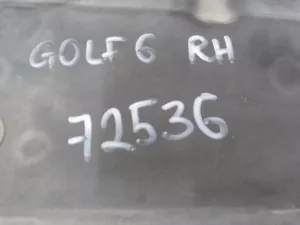 GOLF 6 RH
72536